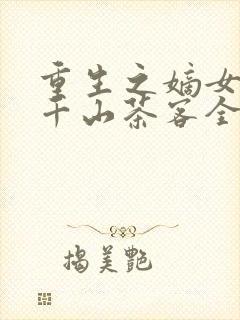 重生之嫡女
千山茶客全
揭美艷